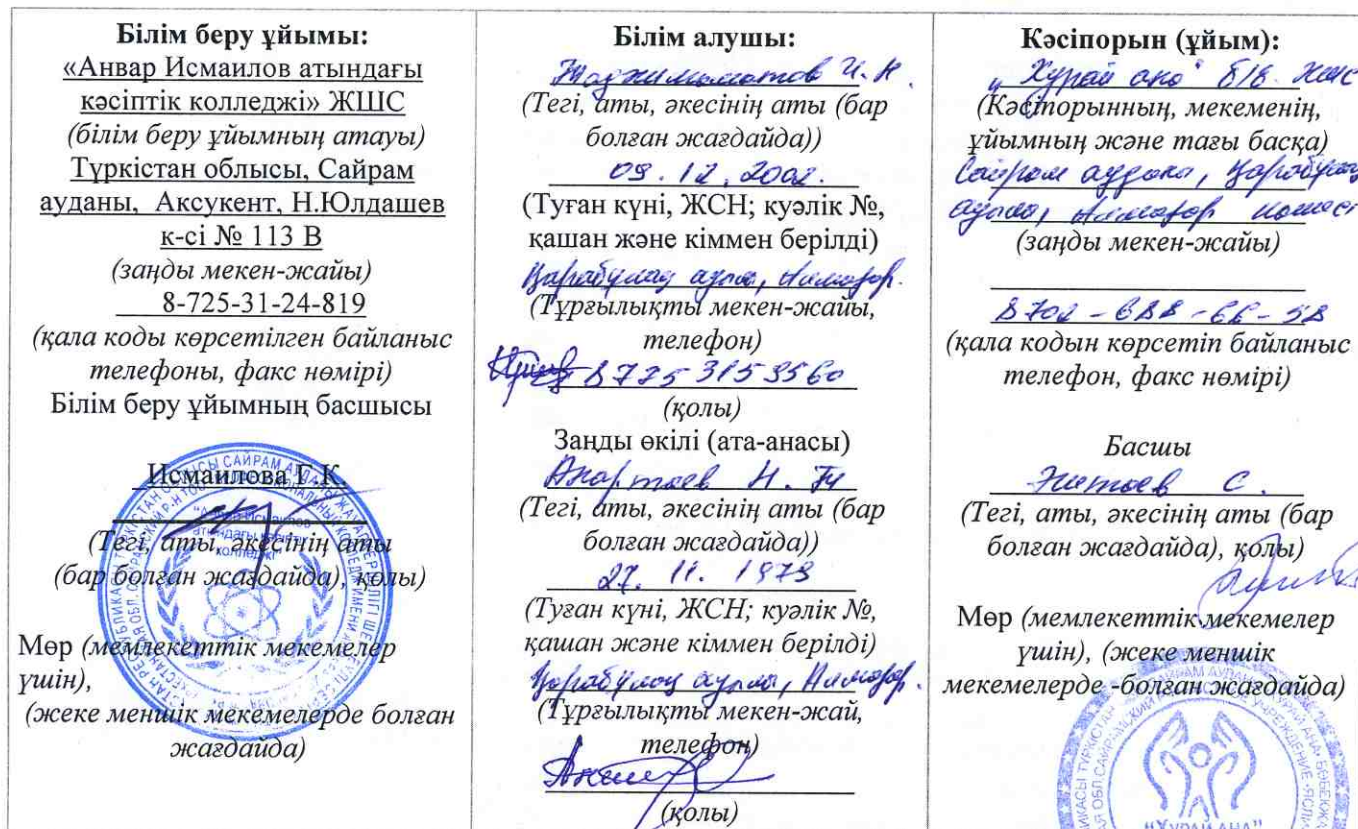 Білім беру ұйымы:
«Анвар Исмаилов атындағы
кәсіптік колледжі» ЖШС
(білім беру ұйымның атауы)
Түркістан облысы, Сайрам
ауданы, Аксукент, Н.Юлдашев
к-сі № 113 В
(заңды мекен-жайы)
8-725-31-24-819
(қала коды көрсетілген байланыс
телефоны, факс нөмірі)
Білім беру ұйымның басшысы
Исмаилова Г.К.
(Тегі, аты, әкесінің аты
(бар болған жағдайда), қолы)
Мөр (мемлекеттік мекемелер
үшін),
(жеке меншік мекемелерде болған
жағдайда)
Білім алушы:
(Тегі, аты, әкесінің аты (бар
болған жағдайда))
09.12.2002.
(Туған күні, ЖСН; куәлік №,
қашан және кіммен берілді)
Қарабұлақ ауылы, Алмазар.
(Тұрғылықты мекен-жайы,
телефон)
87753153560
(қолы)
Заңды өкілі (ата-анасы)
(Тегі, аты, әкесінің аты (бар
болған жағдайда))
27. 11. 1973
(Туған күні, ЖСН; куәлік №,
қашан және кіммен берілді)
Қарабұлақ ауылы, Алмазар.
(Тұрғылықты мекен-жай,
телефон)
(қолы)
Кәсіпорын (ұйым):
"Хурай ана" б/б. ЖШС
(Кәсіторынның, мекеменің,
ұйымның және тағы басқа)
Сайрам ауданы, Қарабұлақ
ауылы, Алмазар көшесі
(заңды мекен-жайы)
8702-688-66-58
(қала кодын көрсетіп байланыс
телефон, факс нөмірі)
Басшы
С.
(Тегі, аты, әкесінің аты (бар
болған жағдайда), қолы)
Мөр (мемлекеттік мекемелер
үшін), (жеке меншік
мекемелерде -болған жағдайда)
"ХУРАЙ АНА"